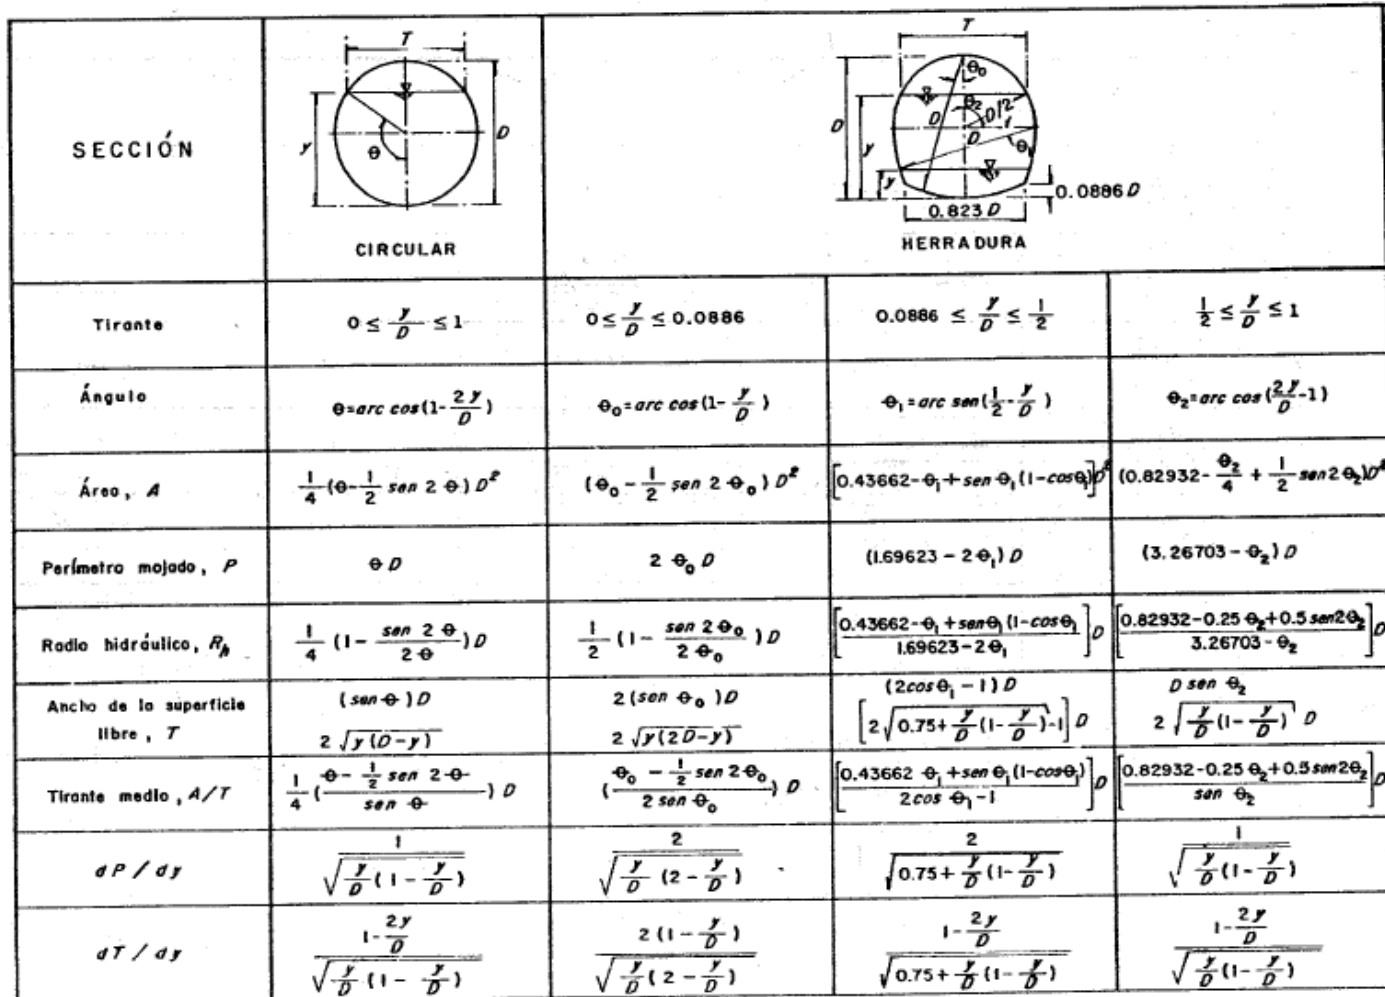 SECCIÓN
T
y
θ
D
CIRCULAR
T
θ₀
θ₂
D
D/2
D
D
y
y
θ₁
0.0886 D
0.823 D
HERRADURA
Tirante
0 ≤ y/D ≤ 1
0 ≤ y/D ≤ 0.0886
0.0886 ≤ y/D ≤ 1/2
1/2 ≤ y/D ≤ 1
Ángulo
θ=arc cos(1-2y/D)
θ₀=arc cos(1-y/D)
θ₁=arc sen(1/2-y/D)
θ₂=arc cos(2y/D-1)
Área, A
1/4 (θ-1/2 sen 2 θ) D²
(θ₀-1/2 sen 2 θ₀) D²
[0.43662-θ₁+sen θ₁(1-cosθ₁)]D²
(0.82932-θ₂/4 + 1/2 sen2θ₂)D²
Perímetro mojado, P
θ D
2 θ₀ D
(1.69623 - 2θ₁) D
(3.26703 - θ₂) D
Radio hidráulico, Rh
1/4 (1 - sen 2 θ/2 θ) D
1/2 (1 - sen 2 θ₀/2 θ₀) D
[0.43662-θ₁+senθ₁(1-cosθ₁/1.69623-2θ₁]D
[0.82932-0.25 θ₂+0.5 sen2θ₂/3.26703-θ₂]D
Ancho de la superficie
libre, T
(sen θ) D
2 √y(D-y)
2(sen θ₀) D
2 √y(2D-y)
(2cos θ₁ - 1) D
[2√0.75+y/D(1-y/D)-1] D
D sen θ₂
2 √y/D(1-y/D) D
Tirante medio, A/T
1/4 (θ-1/2 sen 2 θ/sen θ) D
(θ₀ - 1/2 sen 2θ₀/2 sen θ₀) D
[0.43662 θ₁+sen θ₁(1-cosθ₁)/2cos θ₁-1]D
[0.82932-0.25 θ₂+0.5 sen2θ₂/sen θ₂]D
dP / dy
1/√y/D(1-y/D)
2/√y/D(2-y/D)
2/√0.75+y/D(1-y/D)
1/√y/D(1-y/D)
dT / dy
1-2y/D/√y/D(1-y/D)
2(1-y/D)/√y/D(2-y/D)
1-2y/D/√0.75+y/D(1-y/D)
1-2y/D/√y/D(1-y/D)